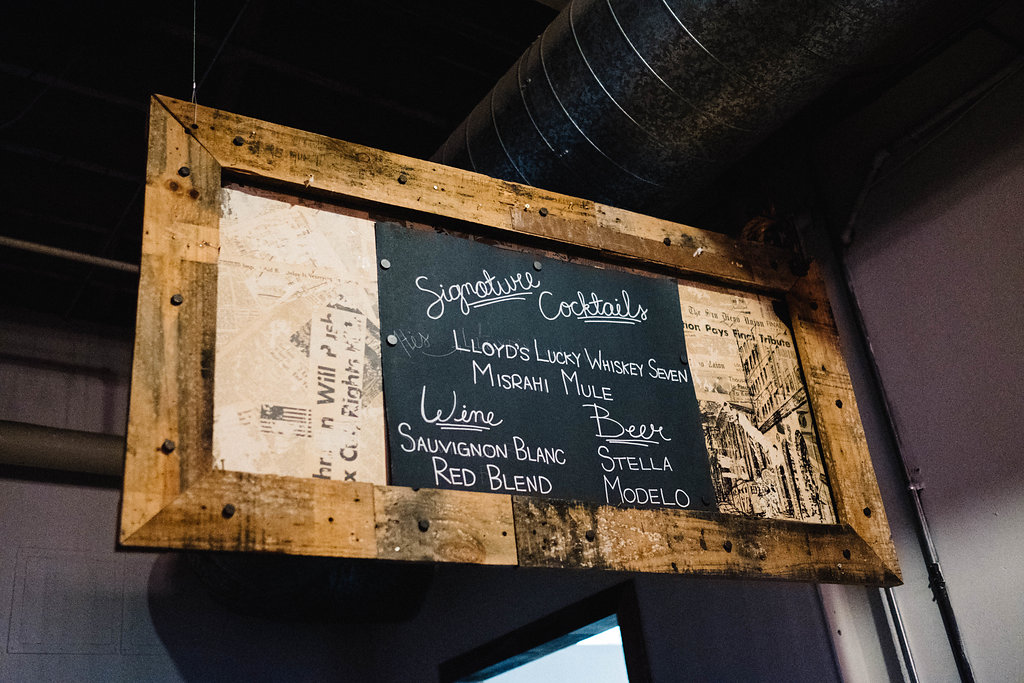 Signature
Cocktails
His
LLOYD'S LUCKY WHISKEY SEVEN
MISRAHI MULE
Wine
SAUVIGNON BLANC
RED BLEND
Beer
STELLA
MODELO
Will Push
Rights
The San Diego Union
Pays Final Tribute